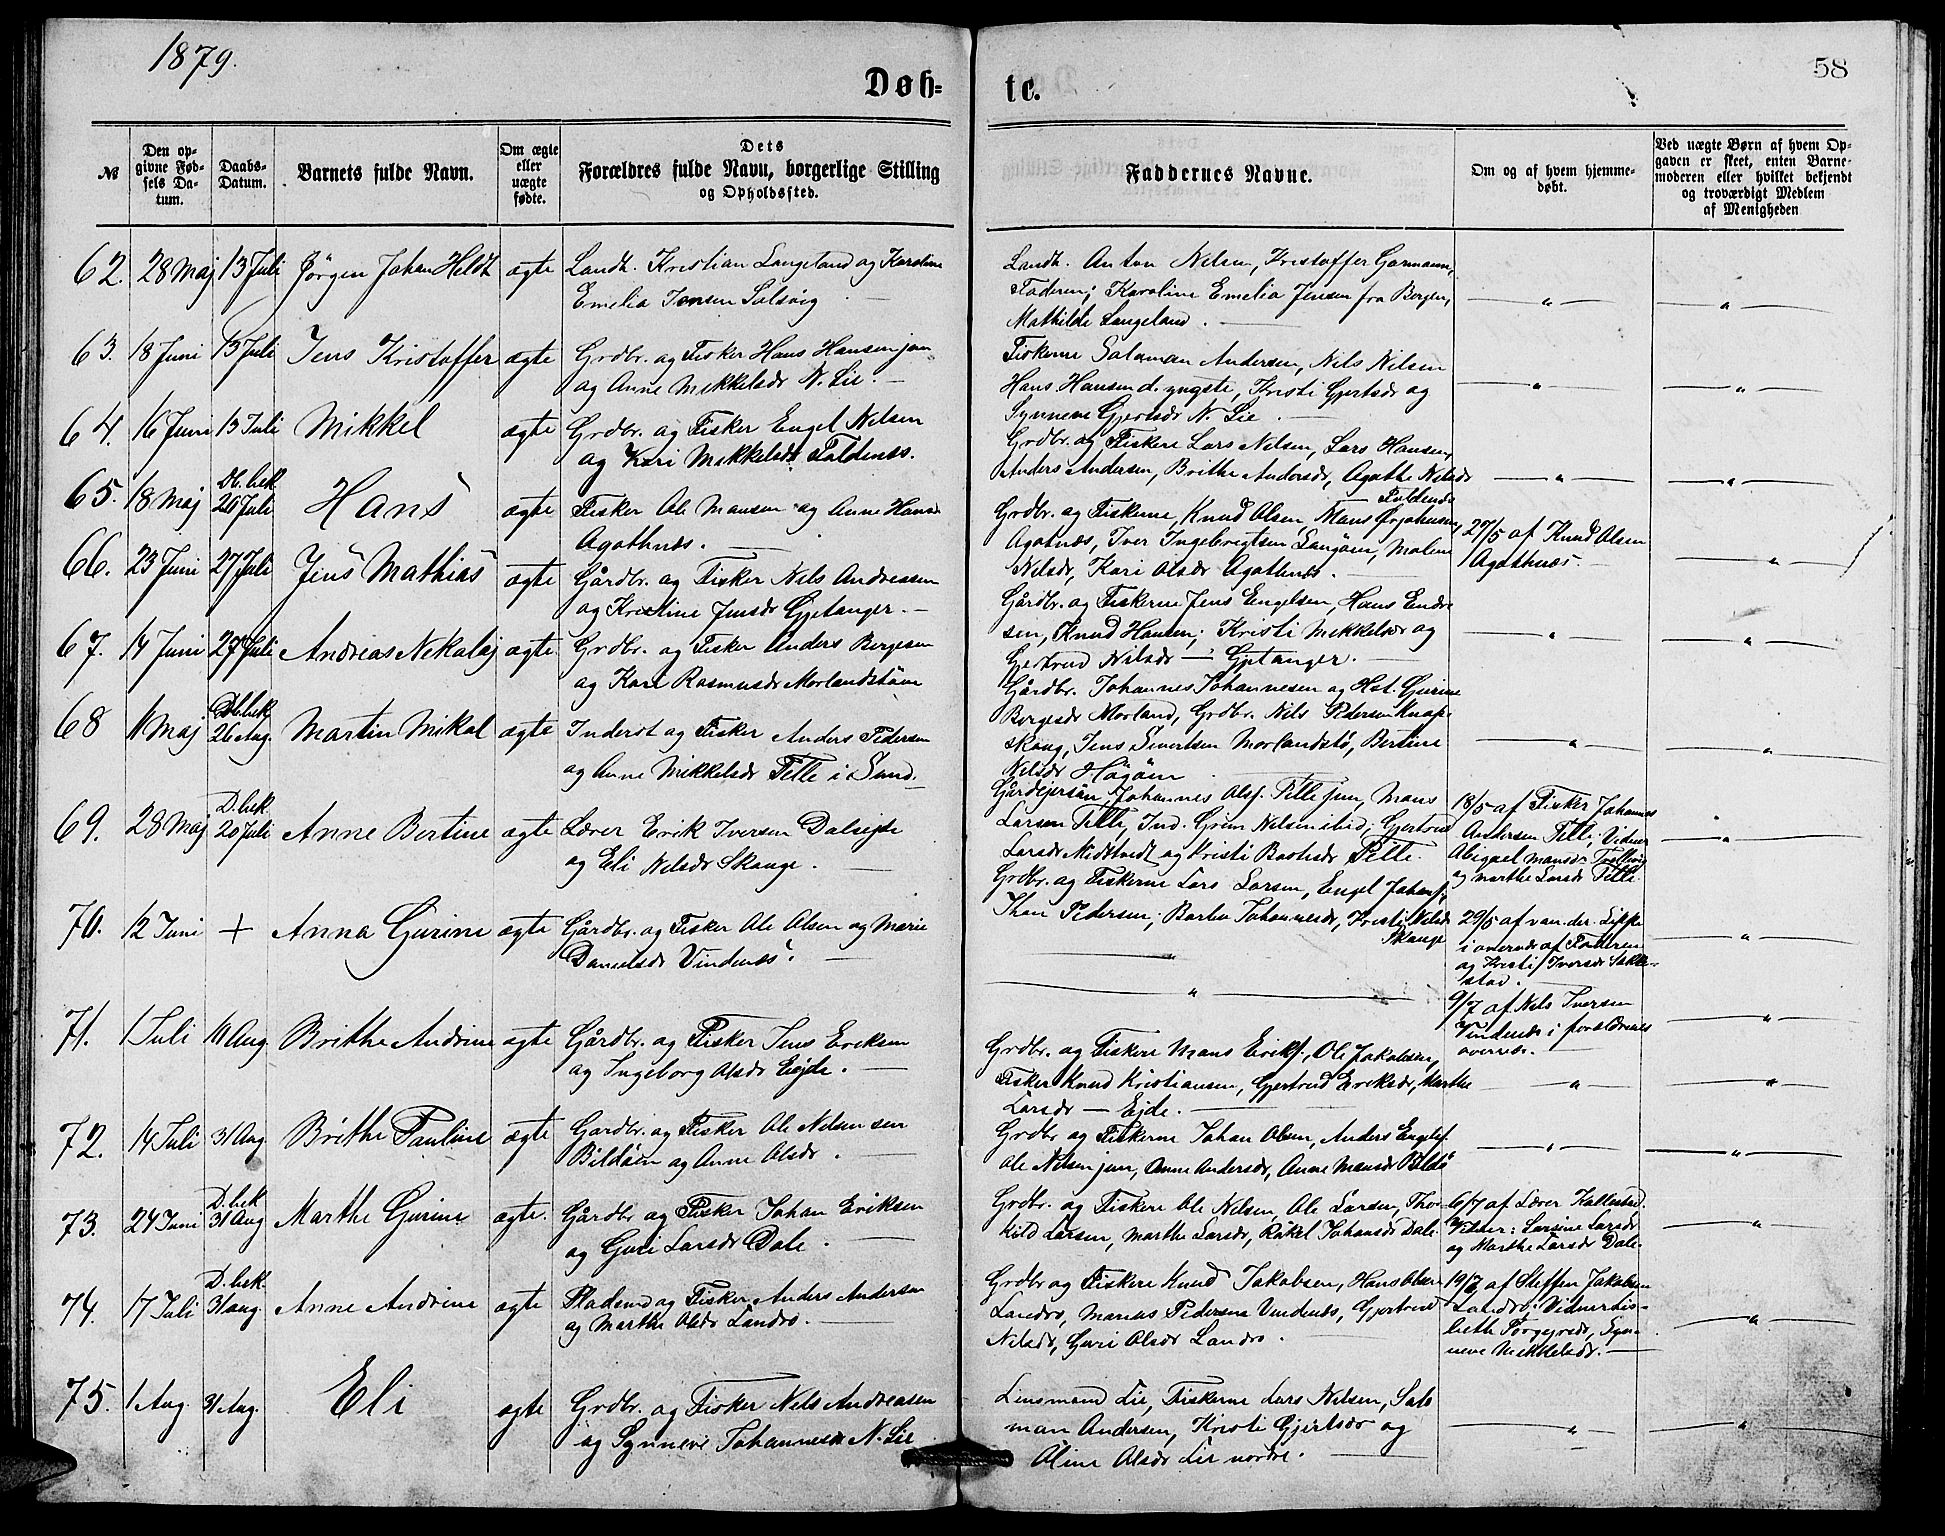 1879.
58
Døb-
te.
№
Den op-
givne Fød-
sels Da-
tum.
Daabs-
Datum.
Barnets fulde Navn.
Om ægte
eller
uægte
fødte.
Dets
Forældres fulde Navn, borgerlige Stilling
og Opholdssted.
Faddernes Navne.
Om og af hvem hjemme-
døbt.
Ved uægte Børn af hvem Op-
gaven er skeet, enten Barne-
moderen eller hvilket bekjendt
og troværdigt Medlem
af Menigheden
62. 28 Maj 13 Juli Jörgen Johan Heldt ægte Landh. Kristian Langeland og Karoline
Emelia Jensen Solsvig
Landh. Anton Nilsen, Kristoffer Garmann,
Faderen; Karoline Emelia Jensen fra Bergen,
Mathilde Langeland.
63. 18 Juni 13 Juli Jens Kristoffer ægte Grdbr. og Fisker Hans Hansen jun
og Anne Mikkelsdr N. Lie.
Fiskerne Salaman Andersen, Nils Nilsen
Hans Hansen d. yngste, Kristi Gjertsdr og
Synneve Gjertsdr N. Lie.
64. 16 Juni 13 Juli Mikkel ægte Grdbr. og Fisker Engel Nilsen
og Kari Mikkelsdr Toldenæs.
Grdbr. og Fiskere Lars Nilsen, Lars Hansen,
Anders Andersen, Brithe Andersdr, Agathe Nilsdr
65. 18 Maj Db. bek 20 Juli Hans ægte Fisker Ole Mansen og Anne Hansdr
Agathnæs.
Grdbr. og Fiskerne, Knud Olsen, Mans
Agatnæs, Iver Ingebrigtsen Langøen, Malene
Nilsdr, Kari Olsdr Agathnæs.
27/5 af Knud Olsen
Agathnæs.
66. 23 Juni 27 Juli Jens Mathias ægte Gårdbr. og Fisker Nils Andreassen
og Kristine Jensdr Gjetanger.
Gårdbr. og Fiskerne Jens Engelsen, Hans Endre
sen, Knud Hansen; Kristi Mikkelsdr og
Gjertrud Nilsdr — Gjetanger.
67. 14 Juni 27 Juli Andreas Nekolaj ægte Grdbr. og Fisker Anders Borgesen
og Kari Rasmusdr Morlandstöen
Gårdbr. Johannes Johannesen og Hst. Gurine
Borgesdr Morland, Grdbr. Nils Pedersen Knap-
skaug, Jens Sivertsen Morlandstø, Bertine
Nilsdr Högöen
68 11 Maj Db. bek 26 Aug. Martin Mikal ægte Inderst og Fisker Anders Pedersen
og Anne Mikkelsdr Telle i Sund.
Gårdejersön Johannes Olsf. Telle jun, Mans
Larsen Telle, Ind. Grim Nilsen ibid, Gjertrud
Larsdr Midtvedt og Kristi Baardsdr Telle.
18/5 af Fisker Johannes
Andersen Telle; Vidner
Abigael Mansdr
og Marthe Larsdr Telle
69. 28 Maj D. bek 20 Juli Anne Bertine ægte Lærer Erik Iversen Dalsejde
og Eli Nilsdr Skauge.
Grdbr. og Fiskerne Lars Larsen, Engel Johans.,
Thor Pedersen; Barbra Johannesdr, Kristi Nilsdr
Skauge
29/5 af van der Lippe
i overvær af Faderen
og Kristi Iversdr
70. 12 Juni + Anna Gurine ægte Gårdbr. og Fisker Ole Olsen og Marie
Danielsdr Vindenæs.
9/7 af Nils Iversen
Vindenæs i forældrenes
overvær.
71. 1 Juli 10 Aug. Brithe Andrine ægte Gårdbr. og Fisker Jens Eriksen
og Ingeborg Olsdr Eide.
Grdbr. og Fiskere Mans Eriks., Ole Jakobsen,
Fisker Knud Kristiansen, Gjertrud Eriksdr, Marthe
Larsdr — Ejde.
72. 14 Juli 31 Aug Brithe Pauline ægte Gardbr. og Fisker Ole Nilsen sen
Bildöen og Anne Olsdr.
Grdbr og Fiskerne Johan Olsen, Anders Engels.
Ole Nilsen jun, Anne Andersdr, Anne Mansdr Bildö
73. 24 Juni D. bek 31 Aug Marthe Gurine ægte. Gårdbr og Fisker Johan Eriksen
og Guri Larsdr Dale.
Grdbr. og Fiskere Ole Nilsen, Ole Larsen, Thor-
kild Larsen, Marthe Larsdr, Rakel Johansdr Dale
6/7 af Lærer Kallestad.
Vidner: Larsine Larsdr
og Marthe Larsdr Dale.
74. 17 Juli D. bek 31 Aug. Anne Andrine ægte Pladsmd og Fisker Anders Andersen
og Marthe Olsdr Landro.
Grdbr og Fiskere Knud Jakobsen, Hans Olsen
Landro, Marius Pedersen Vindenæs, Gjertrud
Nilsdr, Guri Olsdr Landro.
19/7 af Steffen Jakobsen
Landro; Vidner Lis-
beth Torgersdr, Syn-
neve Mikkelsdr.
75. 1 Aug. 31 Aug. Eli ægte Grdbr. og Fisker Nels Andreasen
og Synneve Johannesdr N. Lie
Linsmand Lie, Fiskerne Lars Nilsen, Sala
man Andersen, Kristi Gjertsdr og
Oline Olsdr Lie nordre.